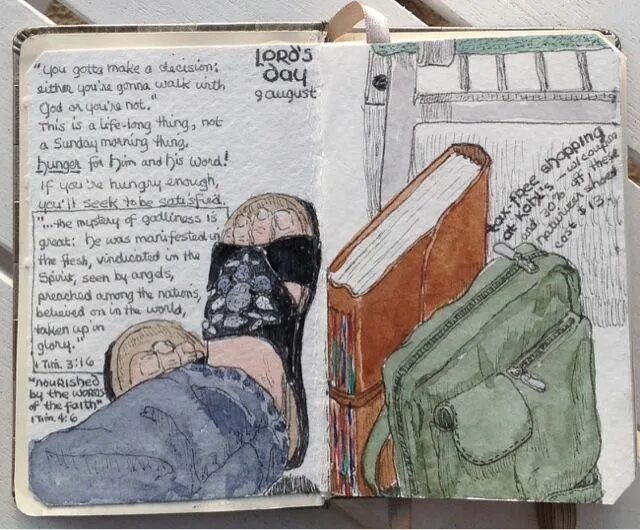 "You gotta make a decision:
either you're gonna walk with
God or you're not."
This is a life-long thing, not
a Sunday morning thing.
hunger for Him and His Word!
If you're hungry enough,
you'll seek to be satisfied.
"...the mystery of godliness is
great: he was manifested in
the flesh, vindicated in the
Spirit, seen by angels,
preached among the nations,
believed on in the world,
taken up in
glory."
1 Tim. 3:16
"nourished
by the words
of the faith"
1 Tim. 4:6
LORD'S
DAY
9 august
tax-free shopping
at Kohl's - w/ coupon
and 30% off these
naturalizer shoes
cost $13.